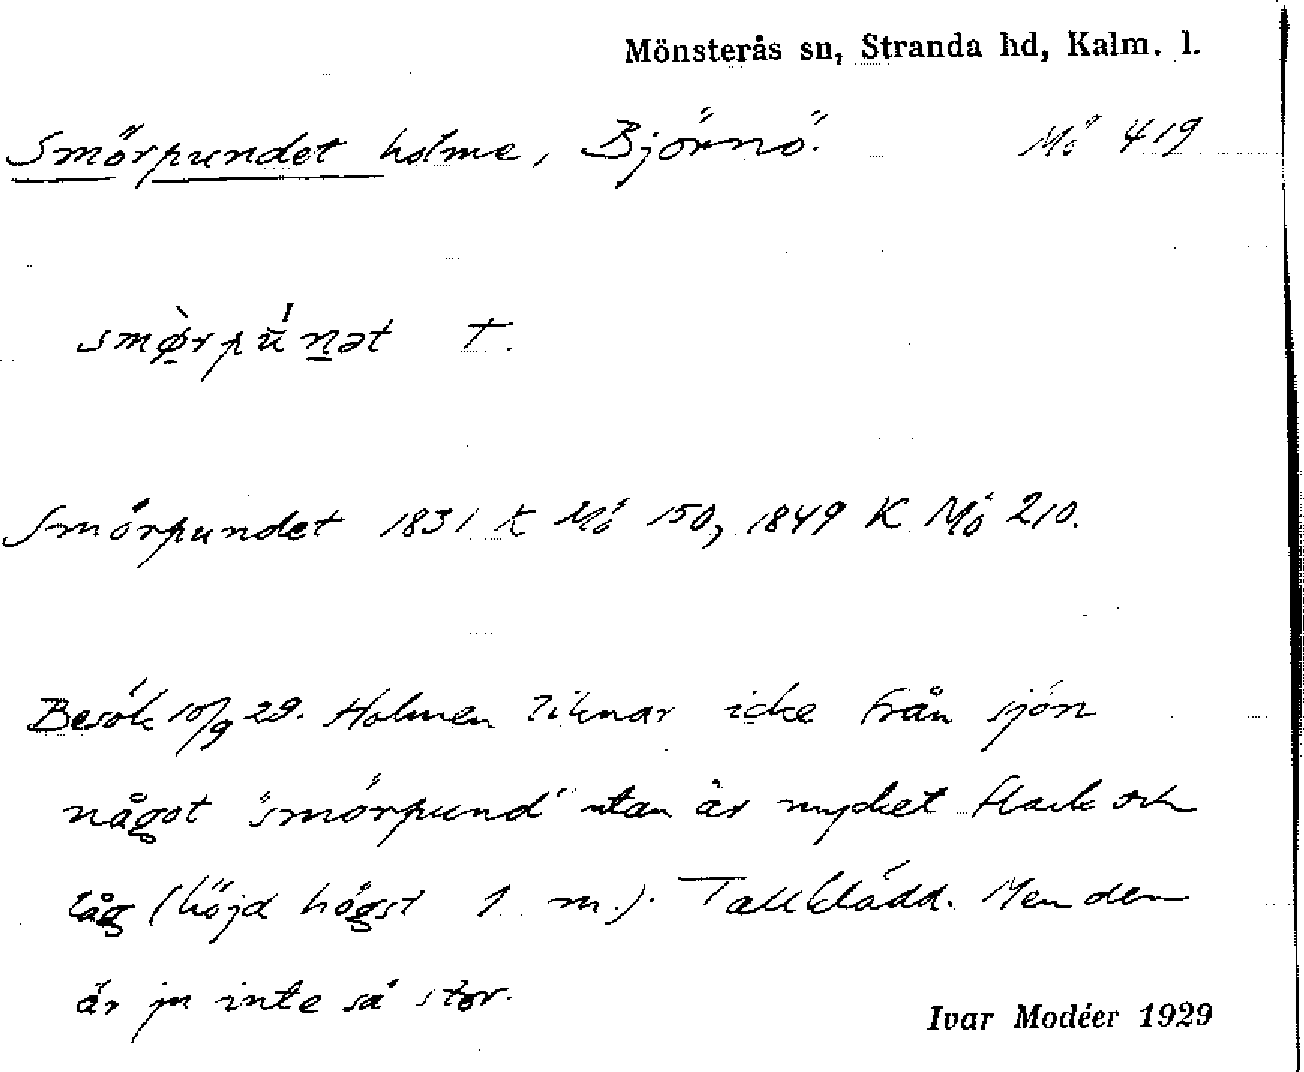 Mönsterås sn, Stranda hd, Kalm. l.
Smörpundet holme, Björnö. Mö 419
smø̀rpú̄nət T.
Smörpundet 1831 K Mö 150, 1849 K Mö 210.
Besök 10/9 29. Holmen liknar icke från sjön
något "smörpund" utan är mycket flack och
låg (höjd högst 1 m.). Tallklädd. Men den
är ju inte så stor.
Ivar Modéer 1929